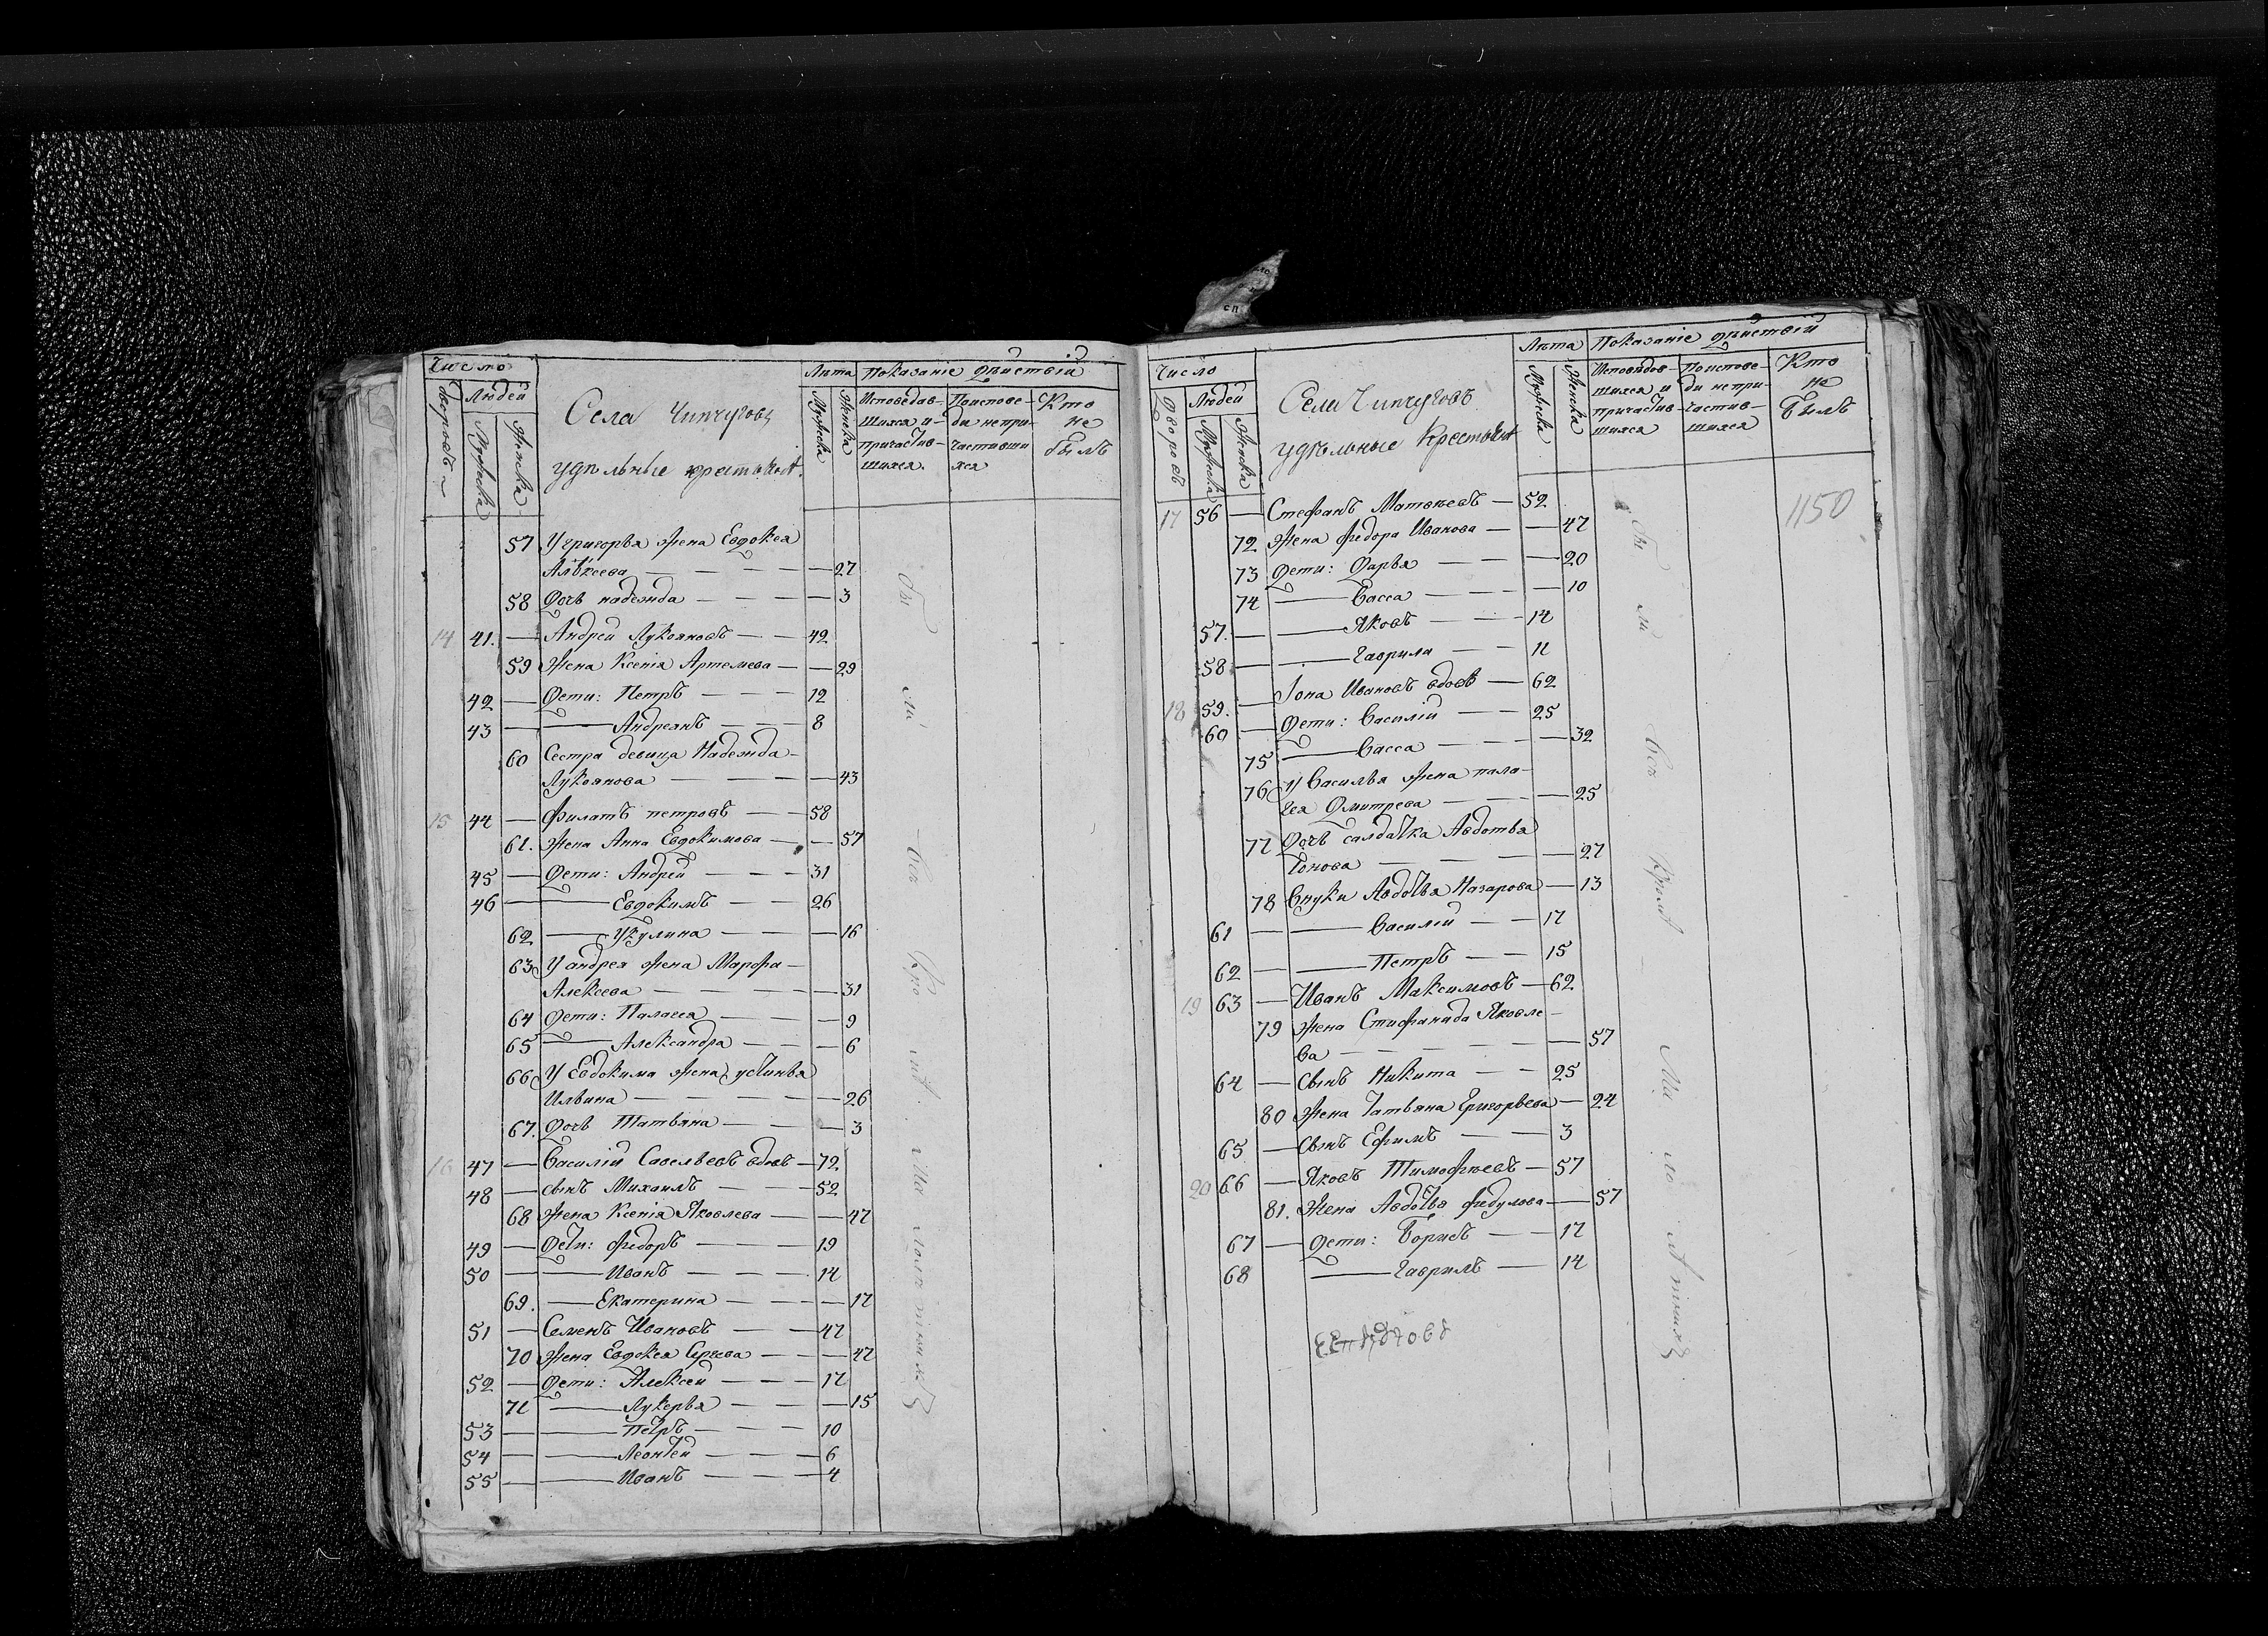 Число
Людей
дворовъ
Мужеска
Женска
Села Чипчугова
удѣльные крестьяня
Лѣта
Мужеска
Женска
Показаніе действій
Исповедав-
шихся и
причастив-
шихся.
Поиспове-
ди непри-
частивши
хся
Кто
не
былъ
57 Угригорья жена Евдокея
Алѣксеева — 27
58 Дочь надежда — 3
14 41. Андрей Лукояновъ — 42
59 Жена Ксенія Артемева — 29
42 Дети: Петръ — 12
43 Андреянъ — 8
60 Сестра девица Надежда
Лукоянова — 43
15 44 Филатъ петровъ — 58
61. Жена Анна Евдокимова — 57
45 Дети: Андрей — 31
46 Евдокимъ — 26
62 Укулина — 16
63 У андрея жена Марфа
Алексеева — 31
64 Дети: Палагея — 9
65 Александра — 6
66 У Евдокима жена устинья
Ильина — 26
67. Дочь Татьяна — 3
16 47 Василій Савельевъ вдовъ — 72
48 сынъ Михаилъ — 52
68 Жена Ксенія Яковлева — 47
49 Дети: Федоръ — 19
50 Иванъ — 14
69. Екатерина — 17
51 Семенъ Ивановъ — 47
70 Жена Евдокея — 47
52 Дети: Алексей — 17
71 Лукерья — 15
53 Петръ — 10
54 Леонтей — 6
55 Иванъ — 4
Число
Людей
Дворовъ
Мужеска
Женска
Села Чипчуговъ
удѣльные крестьяня
Лѣта
Мужеска
Женска
Показаніе дѣйствій
Исповѣдов-
шихся и
причастив-
шихся
Поиспове-
ди непри-
частив-
шихся
Кто
не
былъ
1150
17 56 Стефанъ Матвеевъ — 52
72 Жена федора Иванова — 47
73 Дети: Дарья — 20
74 Васса — 10
57. Яковъ — 14
58 Гаврила — 11
18 59. Іона Ивановъ вдовъ — 62
60 Дети: Василій — 25
75 Васса — 32
76 У Василья жена пала-
гея Дмитрева — 25
77 Дочь салдатка Авдотья
Ионова — 27
78 Внуки Авдотья Назарова — 13
61 Василей — 17
62 Петръ — 15
19 63 Иванъ Максимовъ — 62
79 Жена Стифанида Яковле-
ва — 57
64 Сынъ Никита — 25
80 Жена Татьяна Григорьева — 24
65 Сынъ Ефимъ — 3
20 66 Яковъ Тимофѣевъ — 57
81. Жена Авдотья Федулова — 57
67 Дети: Борисъ — 17
68 Гаврилъ — 14